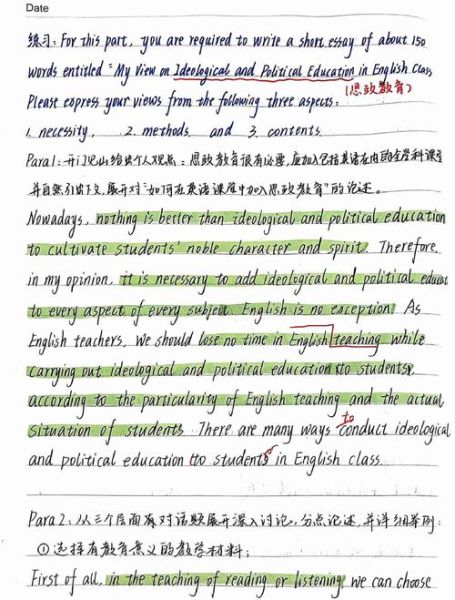 Date
练习: For this part, you are required to write a short essay of about 150
words entitled "My View on Ideological and Political Education in English Class
(思政教育)
Please express your views from the following three aspects:
1. necessity, 2. methods and 3. contents.
Para1: 开门见山给出个人观点: 思政教育很有必要, 应加入包括英语在内的全学科课堂
并自然引出下文, 展开对"如何在英语课堂中加入思政教育"的论述。
Nowadays, nothing is better than ideological and political education
to cultivate students' noble character and spirit. Therefore,
in my opinion, it is necessary to add ideological and political educat
to every aspect of every subject. English is no exception. As
English teachers, we should lose no time in English teaching while
carrying out ideological and political education to students,
according to the particularity of English teaching and the actual
situation of students. There are many ways to conduct ideological
and political education (to students) in English class.
Para2: 从三个层面对话题展开深入讨论, 分点论述, 并详细举例:
①选择有教育意义的教学材料;
First of all, in the teaching of reading or listening, we can choose